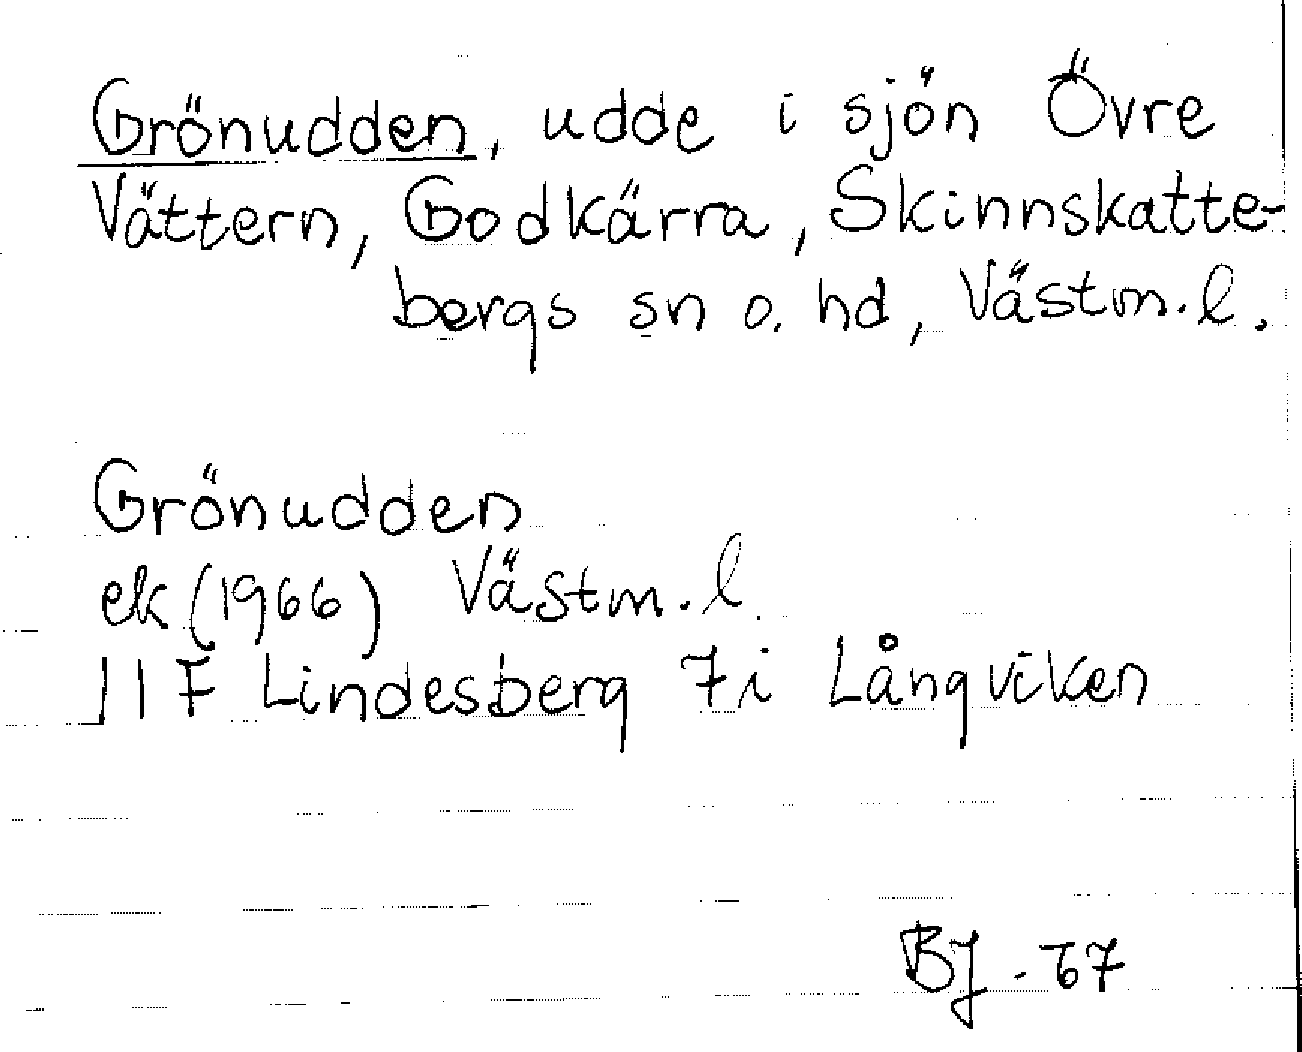 Grönudden, udde i sjön Övre
Vättern, Godkärra, Skinnskatte-
bergs sn o. hd, Västm. l.
Grönudden
ek (1966) Västm. l.
11F Lindesberg 7i Långviken
BJ - 67